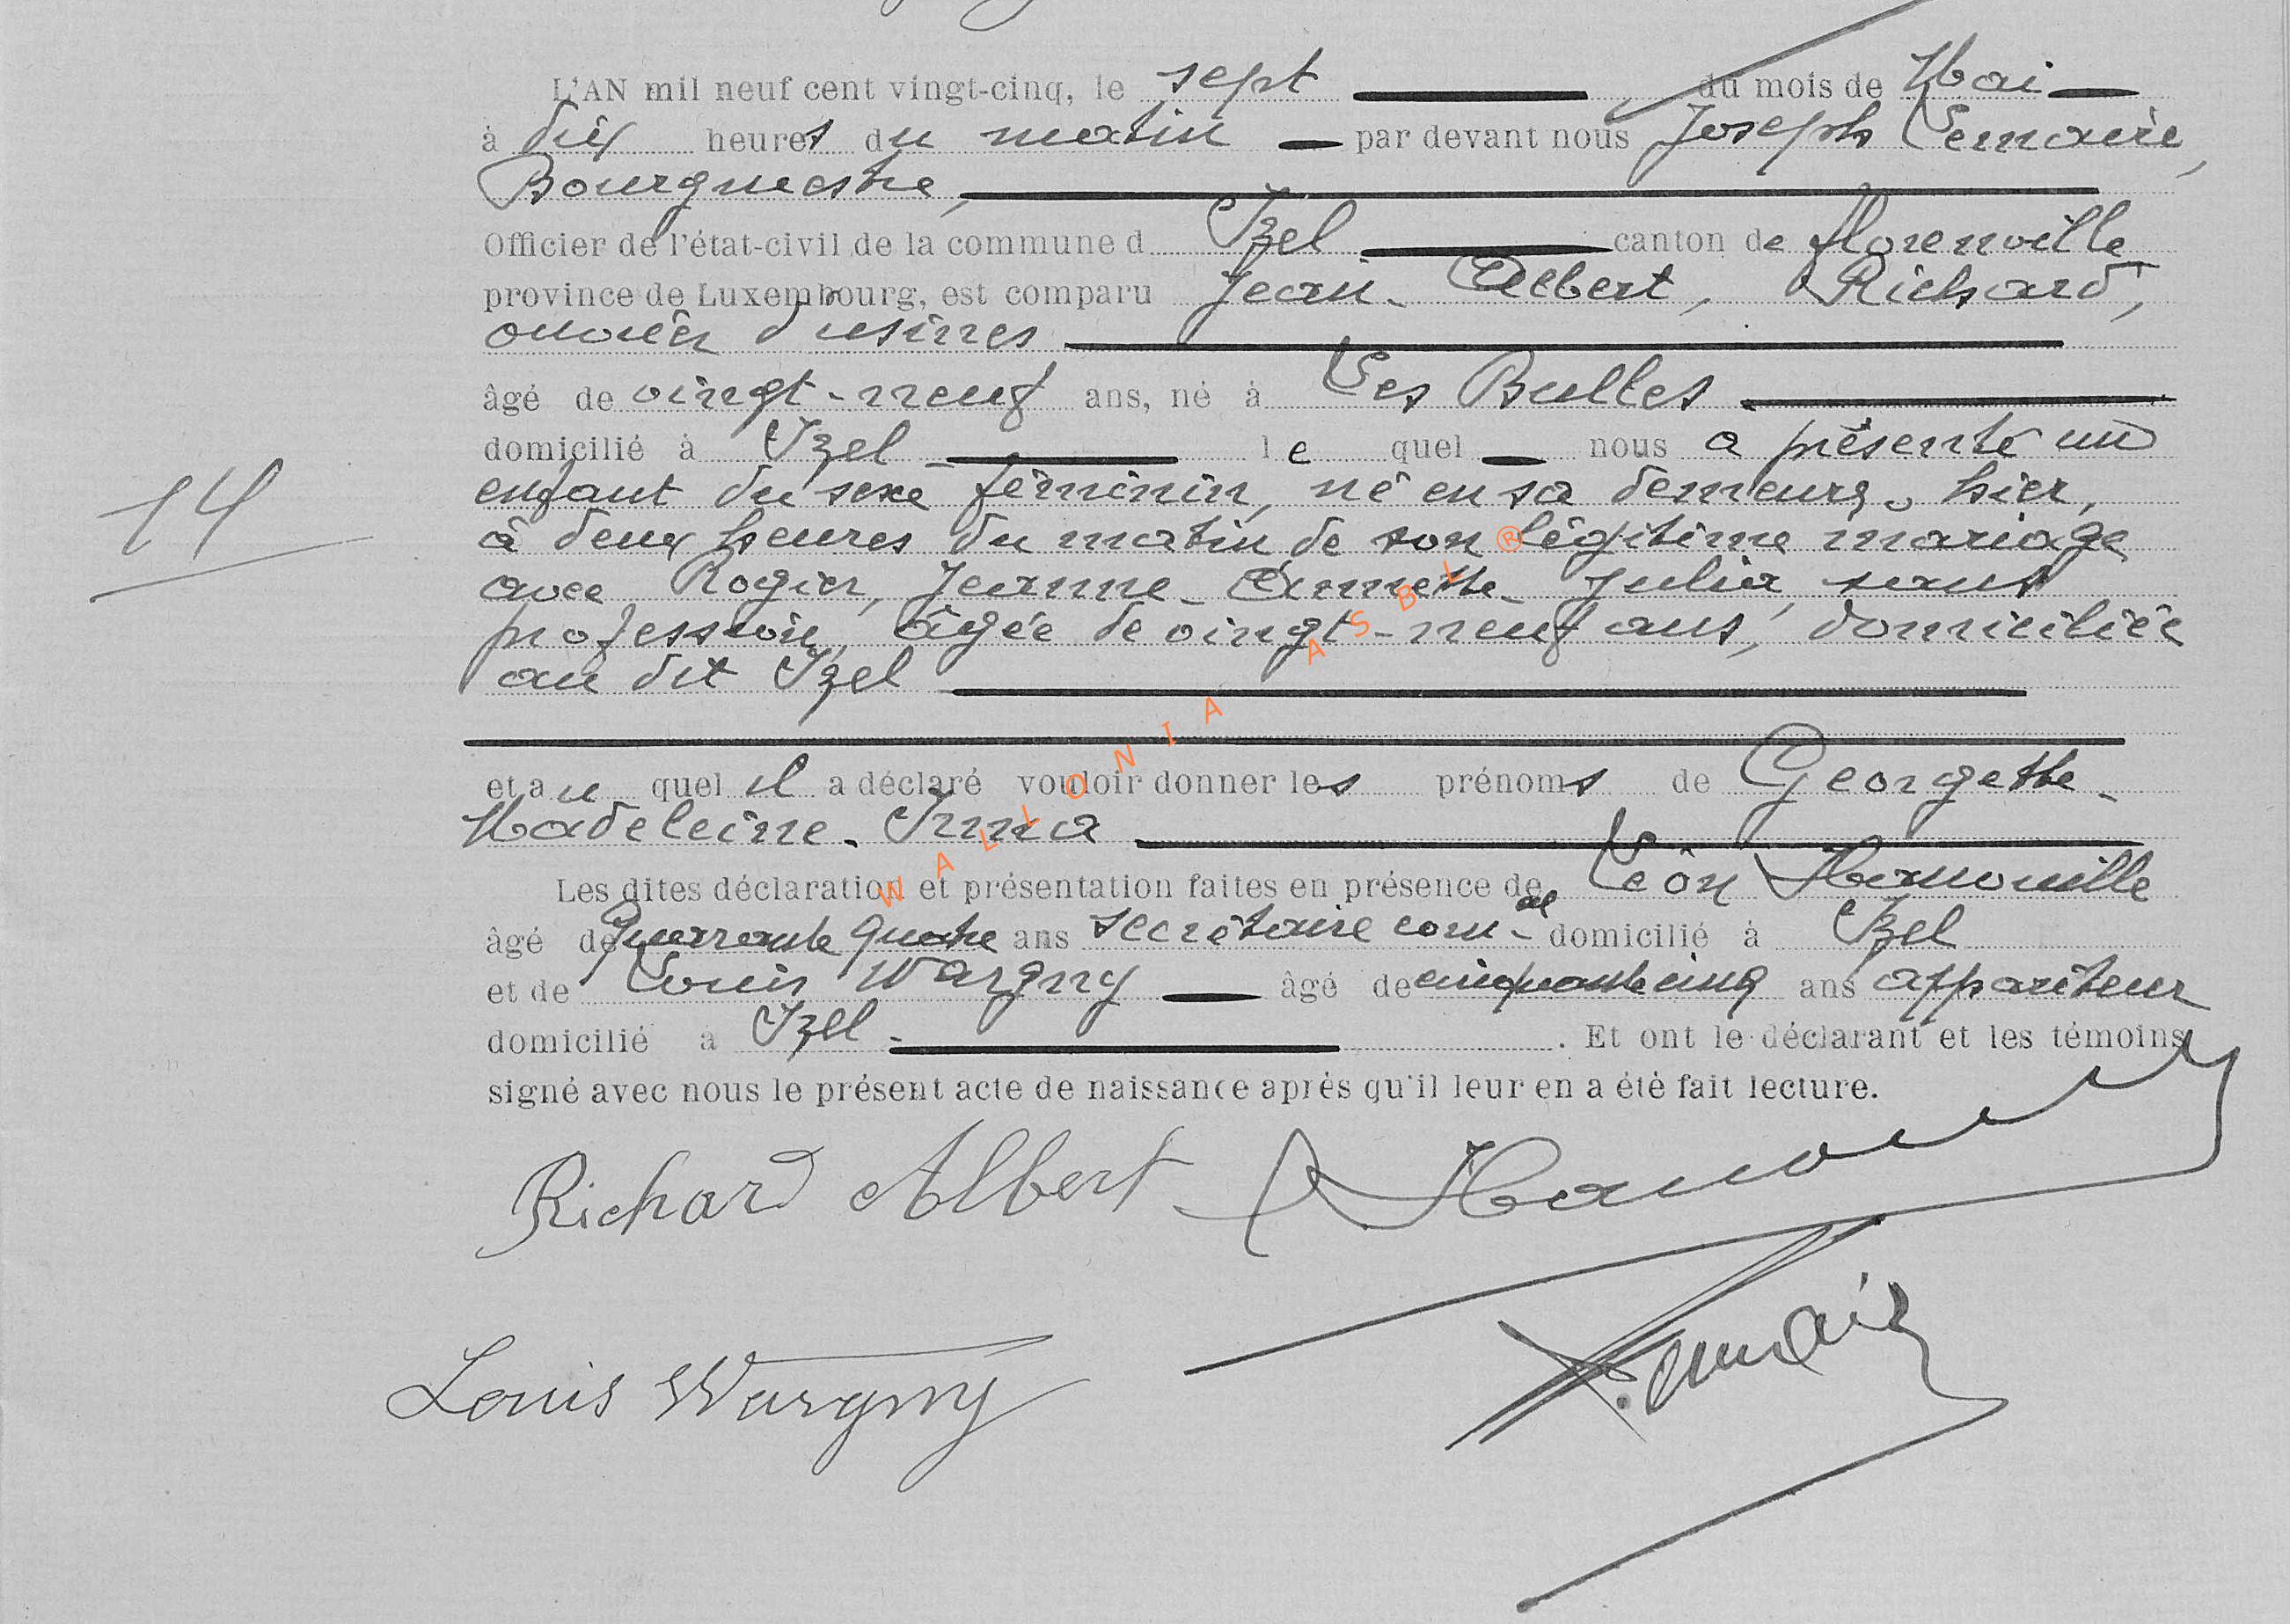 L'AN mil neuf cent vingt-cinq, le sept du mois de Mai
à dix heures du matin par devant nous Joseph Lemaire,
Bourgmestre,
Officier de l'état-civil de la commune d Izel canton de Florenville
province de Luxembourg, est comparu Jean-Albert, Richard,
ouvrier d'usines
âgé de vingt-neuf ans, né à Les Bulles
domicilié à Izel lequel nous a présenté un
enfant du sexe féminin, né en sa demeure, hier,
14
à deux heures du matin de son légitime mariage
avec Rogier, Jeanne-Annette-Julia, sans
profession, âgée de vingt-neuf ans, domiciliée
au dit Izel
et au quel il a déclaré vouloir donner les prénoms de Georgette-
Madeleine-Irma
Les dites déclaration et présentation faites en présence de Léon
âgé de Quarrante quatre ans secrétaire com-al domicilié à Izel
et de Louis Wargny âgé de cinquante cinq ans appariteur
domicilié à Izel. Et ont le déclarant et les témoins
signé avec nous le présent acte de naissance après qu'il leur en a été fait lecture.
Richard Albert
Louis Wargny
J. Lemaire
WALLONIA ASBL ®